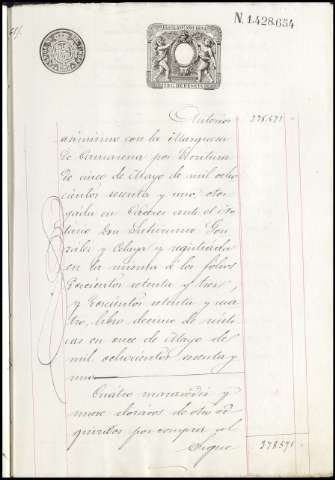 N. 1.428.654
Autoriza 278.571
asimismo con la Marquesa
de Camarena por Escritura
de cinco de Mayo de mil ocho
cientos sesenta y uno, otor
gada en Cáceres ante el No
tario Don Gonz
alez y Celaya y registrada
en la misma á los folios
doscientos setenta y tres,
y doscientos setenta y cua
tro, libro decimo de
cas en once de Mayo de
mil ochocientos sesenta y
uno
Cuatro maravedis y
nueve de otro ad
quiridos por compra al
Sigue 278.571